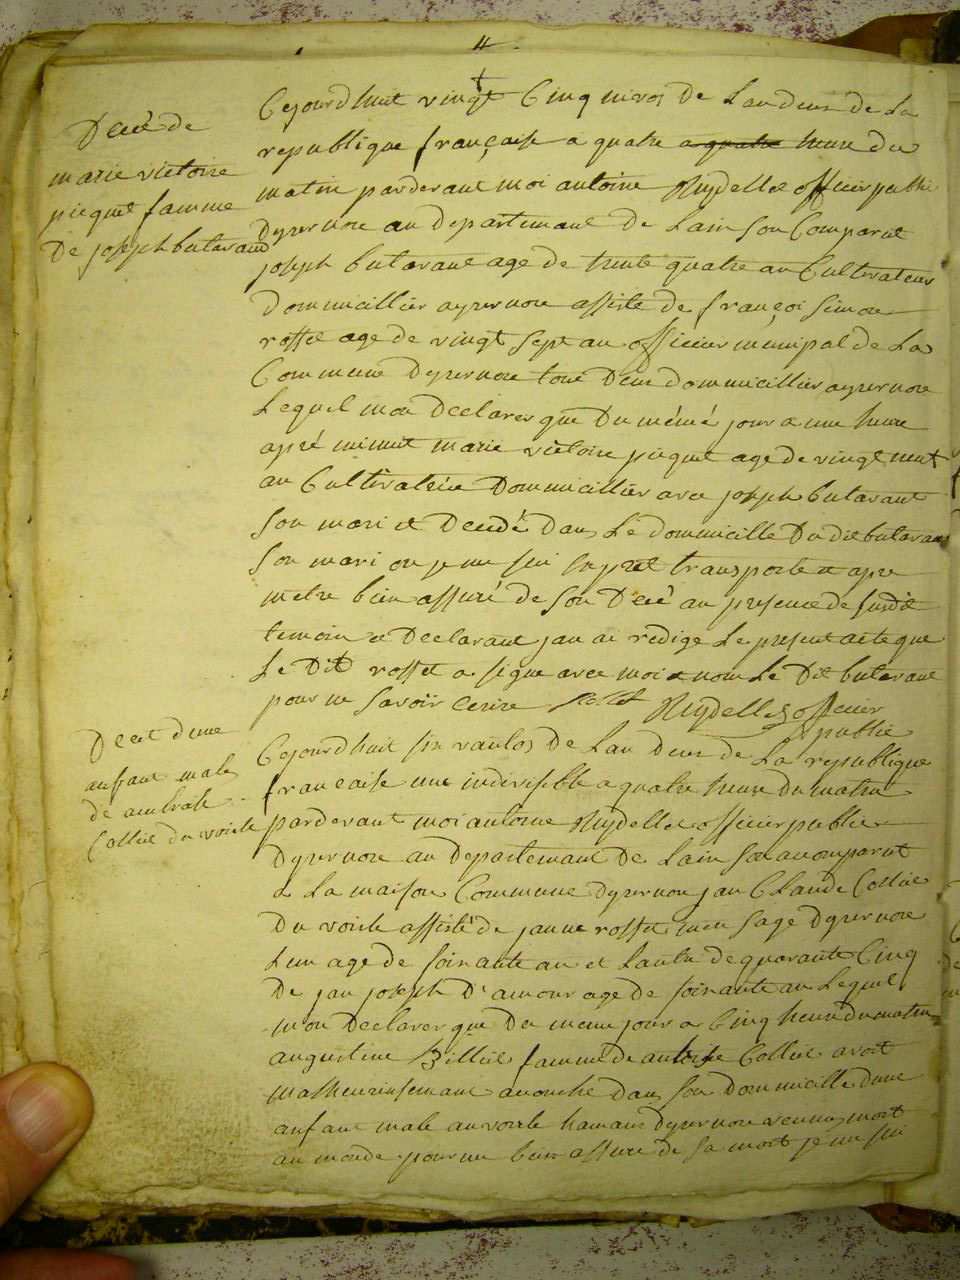 4
Decé de
marie victoire
picquet famme
De joseph butavand
Cejourdhuit vingt Cinq nivos De Lan deus de La
republique française a quatre a quatre heure du
matin pardevant moi antoine Nydellet officier public
Dyzernore au Departemant De Lain Son Comparut
joseph butavant age de trente quatre an Cultivateur
Dommicillier a yzernore assisté de françoi Simon
rosset age de vingt Sept an officier municipal de La
Commune Dyzernore tous Deus dommicillier a yzernore
Lequel mon Declarer que Du mémé jour a une heure
apré minuit marie victoire picquet age de vingt neuf
an Cultivatrice Dommicillier avec joseph butavant
Son mari et Decedé Dans Le dommicille Du dit butavant
Son mari ou je me sui transporte et apre
metre bien assuré de Son Decé au presence de susdit
temoin et Declarant jan ai redige Le present acte que
Le Dit rosset a signe avec moi et nom Le Dit butavant
pour ne Savoir Ecrire Rosset Nydellet officier
public
Decet dune
anfant male
de
Collet du voirle
Cejourdhuit six vantos De Lan Deus de La republique
francaise une indivisible a quatre heure Du matin
pardevant moi antoine Nydellet officier public
Dyzernore au Departemant De Lain Son comparut
a La maison Commune Dyzernore jan Claude Collet
Du voirle assisté de janne rosset sage Dyzernore
Lun age de soixante an et Lautre de quarante Cinq
De jan joseph D'amour age de soixante an Lequel
mon Declarer que Du meme jour a Cinq heure Du matin
augustine famme de antoine Collet avoit
malheureusemant acouché dans Son Dommicille Dune
anfant male au voirle hamaux Dyzernore venu mort
au monde pour me bien assure De Sa mort je me sui